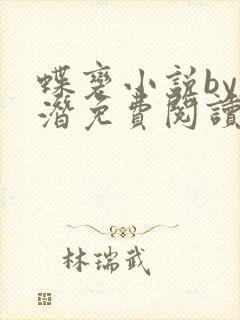 蝶变小说by
潜免费阅读
林瑞武